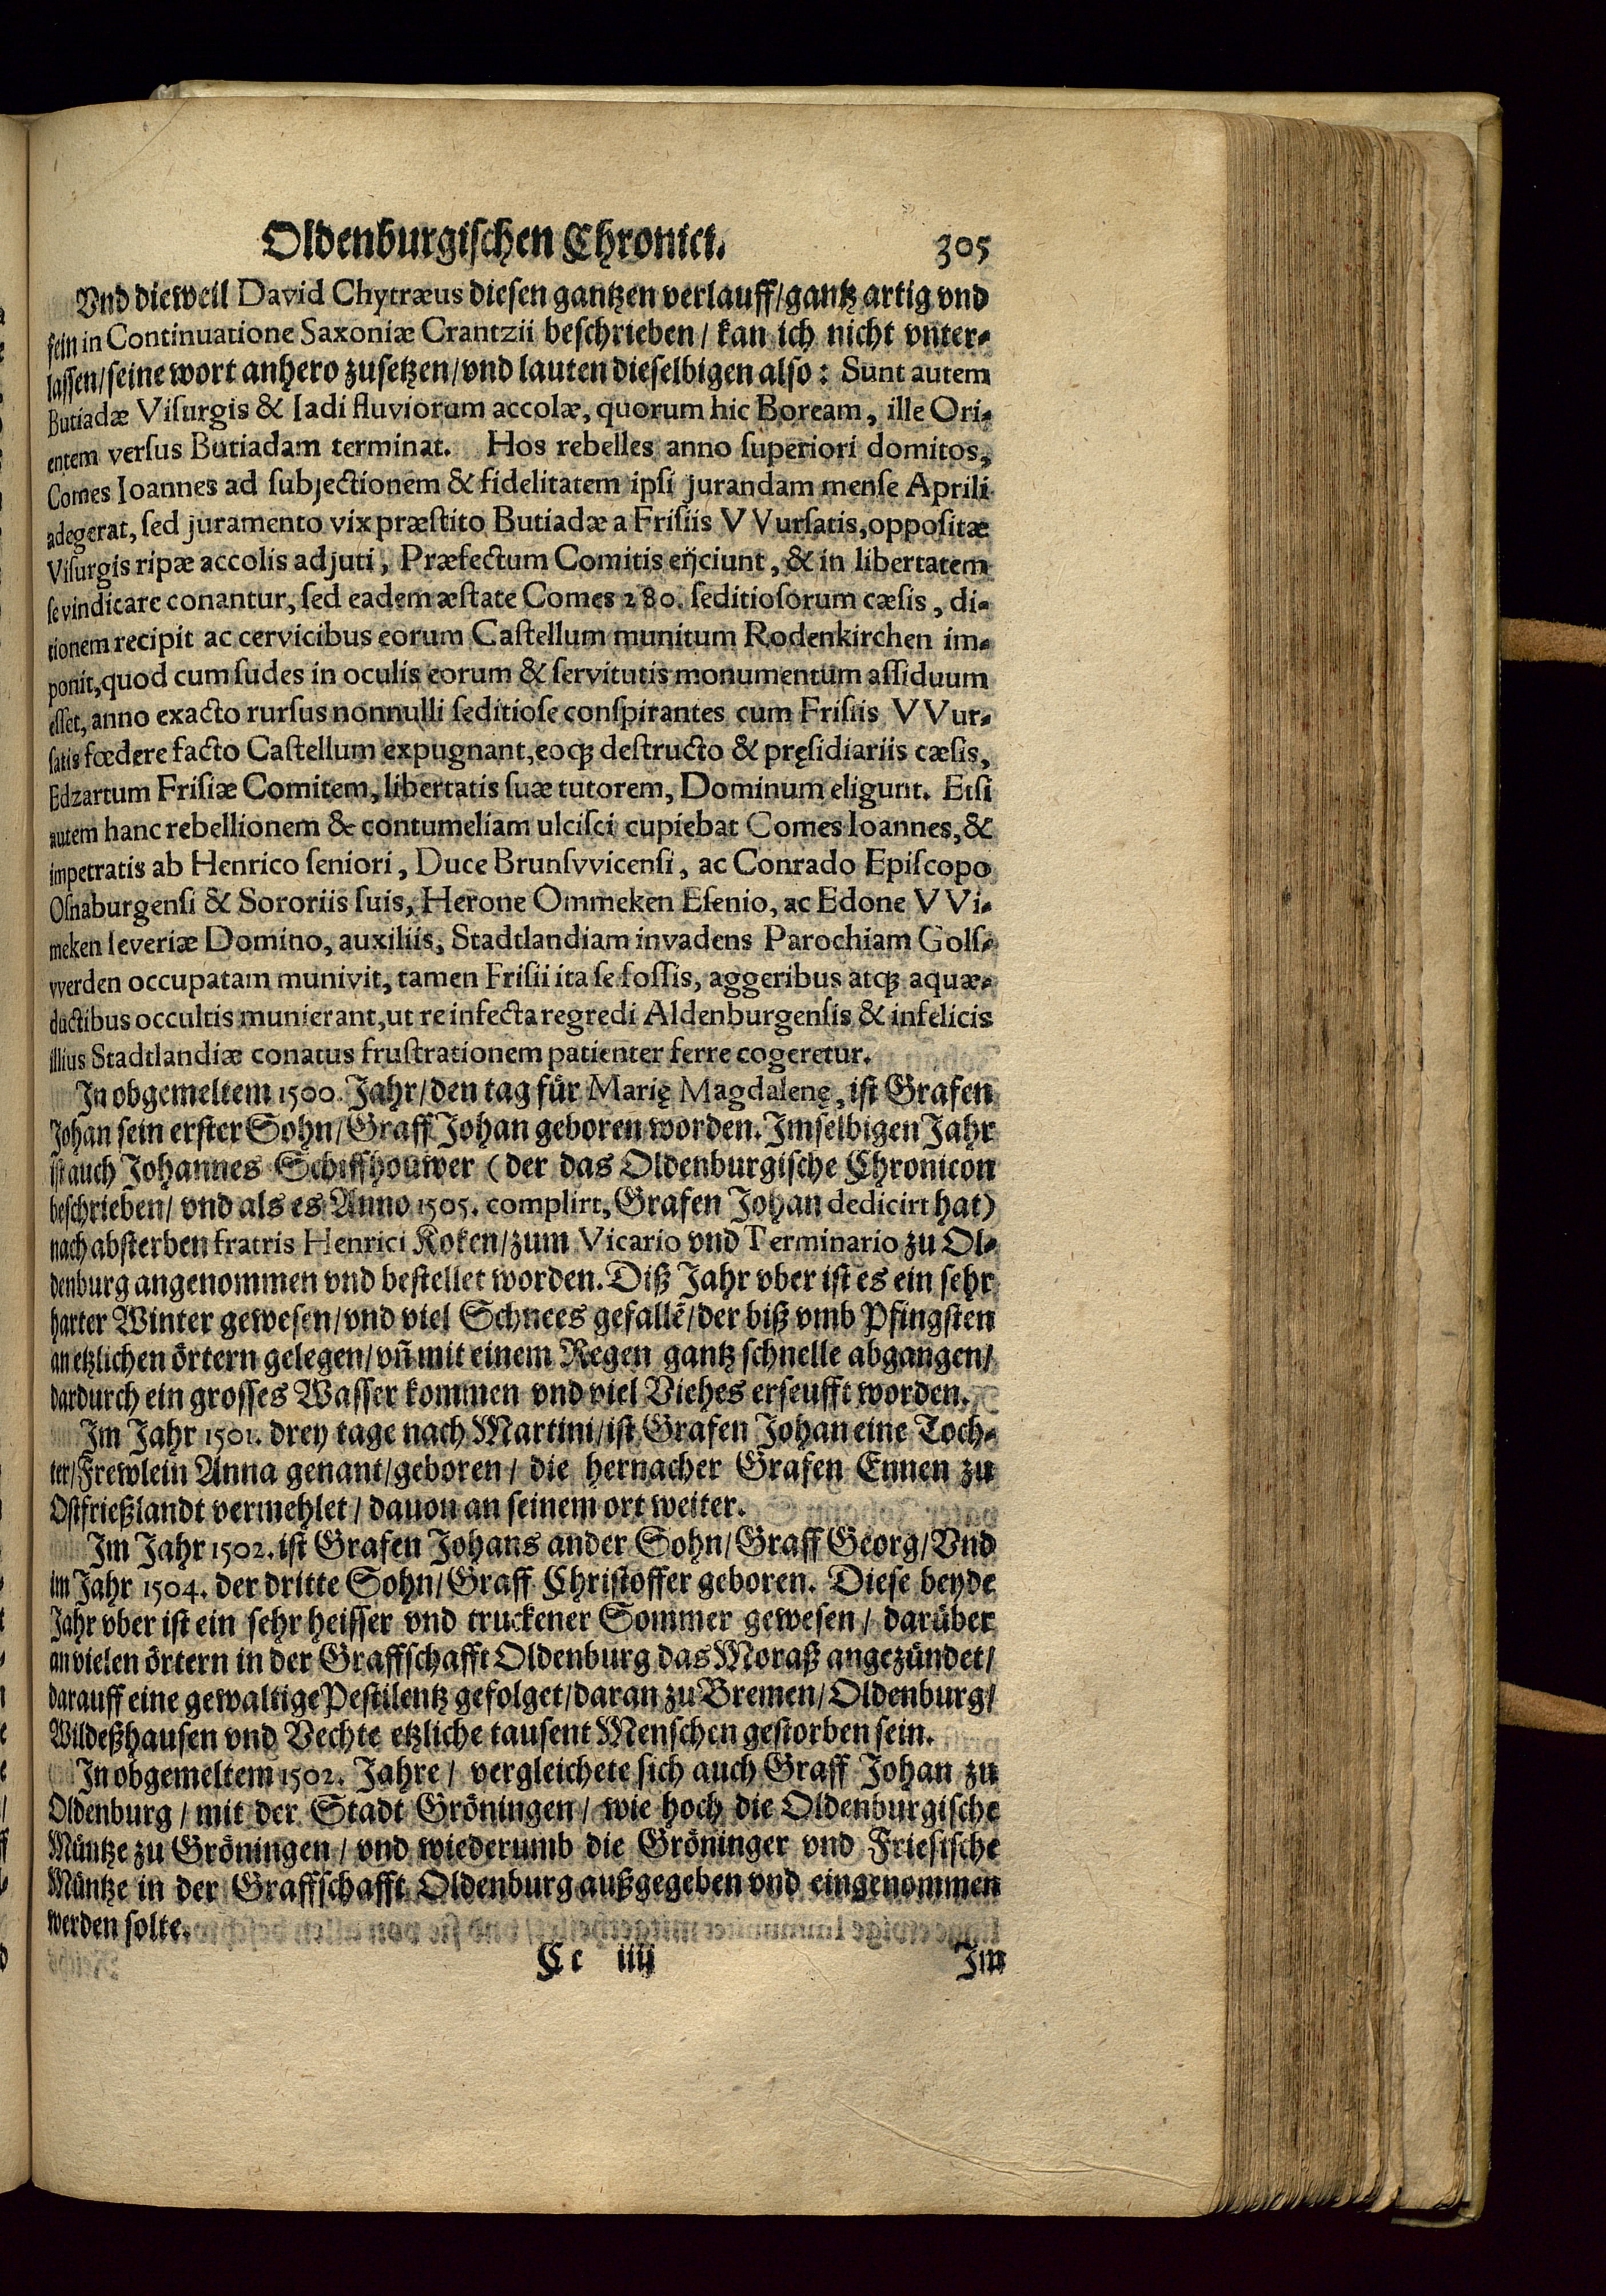 Oldenburgischen Chronici. 305
Vnd dieweil David Chytræus diesen gantzen verlauff/gantz artig vnd
fein in Continuatione Saxoniæ Crantzii beschrieben / kan ich nicht vnter-
lassen/seine wort anhero zusetzen/vnd lauten dieselbigen also: Sunt autem
Butiadæ Viſurgis & Iadi fluviorum accolæ, quorum hic Boream, ille Ori-
entem verſus Butiadam terminat. Hos rebelles anno ſuperiori domitos,
Comes Ioannes ad ſubjectionem & fidelitatem ipſi jurandam menſe Aprili
adegerat, ſed juramento vix præſtito Butiadæ a Friſiis VVurſatis, oppoſitæ
Viſurgis ripæ accolis adjuti, Præfectum Comitis eijciunt, & in libertatem
ſe vindicare conantur, ſed eadem æſtate Comes 280. ſeditioſorum cæſis, di-
tionem recipit ac cervicibus eorum Caſtellum munitum Rodenkirchen im-
ponit, quod cum ſudes in oculis eorum & ſervitutis monumentum aſſiduum
eſſet, anno exacto rurſus nonnulli ſeditioſe conſpirantes cum Friſiis VVur-
ſatis fœdere facto Caſtellum expugnant, eoq; deſtructo & pręſidiariis cæſis,
Edzartum Friſiæ Comitem, libertatis ſuæ tutorem, Dominum eligunt. Etſi
autem hanc rebellionem & contumeliam ulciſci cupiebat Comes Ioannes, &
impetratis ab Henrico ſeniori, Duce Brunſvvicenſi, ac Conrado Epiſcopo
Oſnaburgenſi & Sororiis ſuis, Herone Ommeken Eſenio, ac Edone VVi-
meken Ieveriæ Domino, auxiliis, Stadtlandiam invadens Parochiam Golſ-
vverden occupatam munivit, tamen Friſii ita ſe foſſis, aggeribus atq; aquæ-
ductibus occultis munierant, ut re infecta regredi Aldenburgenſis & infelicis
illius Stadtlandiæ conatus fruſtrationem patienter ferre cogeretur.
In obgemeltem 1500. Jahr/den tag für Marię Magdalenę, ist Grafen
Johan sein erster Sohn/Graff Johan geboren worden. Imselbigen Jahr
ist auch Johannes Schiffhouwer (der das Oldenburgische Chronicon
beschrieben/ vnd als es Anno 1505. complirt, Grafen Johan dedicirt hat)
nach absterben fratris Henrici Koken/zum Vicario vnd Terminario zu Ol-
denburg angenommen vnd bestellet worden. Diß Jahr vber ist es ein sehr
harter Winter gewesen/vnd viel Schnees gefallẽ/der biß vmb Pfingsten
an etzlichen örtern gelegen/vñ mit einem Regen gantz schnelle abgangen/
dardurch ein grosses Wasser kommen vnd viel Viehes erseufft worden.
Im Jahr 1501. drey tage nach Martini/ist Grafen Johan eine Toch-
ter/Frewlein Anna genant/geboren/ die hernacher Grafen Ennen zu
Ostfrießlandt vermehlet/ dauon an seinem ort weiter.
Im Jahr 1502. ist Grafen Johans ander Sohn/Graff Georg/Vnd
im Jahr 1504. der dritte Sohn/Graff Christoffer geboren. Diese beyde
Jahr vber ist ein sehr heisser vnd truckener Sommer gewesen/ darüber
an vielen örtern in der Graffschafft Oldenburg das Moraß angezündet/
darauff eine gewaltige Pestilentz gefolget/daran zu Bremen/Oldenburg/
Wildeßhausen vnd Vechte etzliche tausent Menschen gestorben sein.
In obgemeltem 1502. Jahre/ vergleichete sich auch Graff Johan zu
Oldenburg/ mit der Stadt Gröningen/ wie hoch die Oldenburgische
Müntze zu Gröningen/ vnd wiederumb die Gröninger vnd Friesische
Müntze in der Graffschafft Oldenburg außgegeben vnd eingenommen
werden solte.
Cc iiij Im